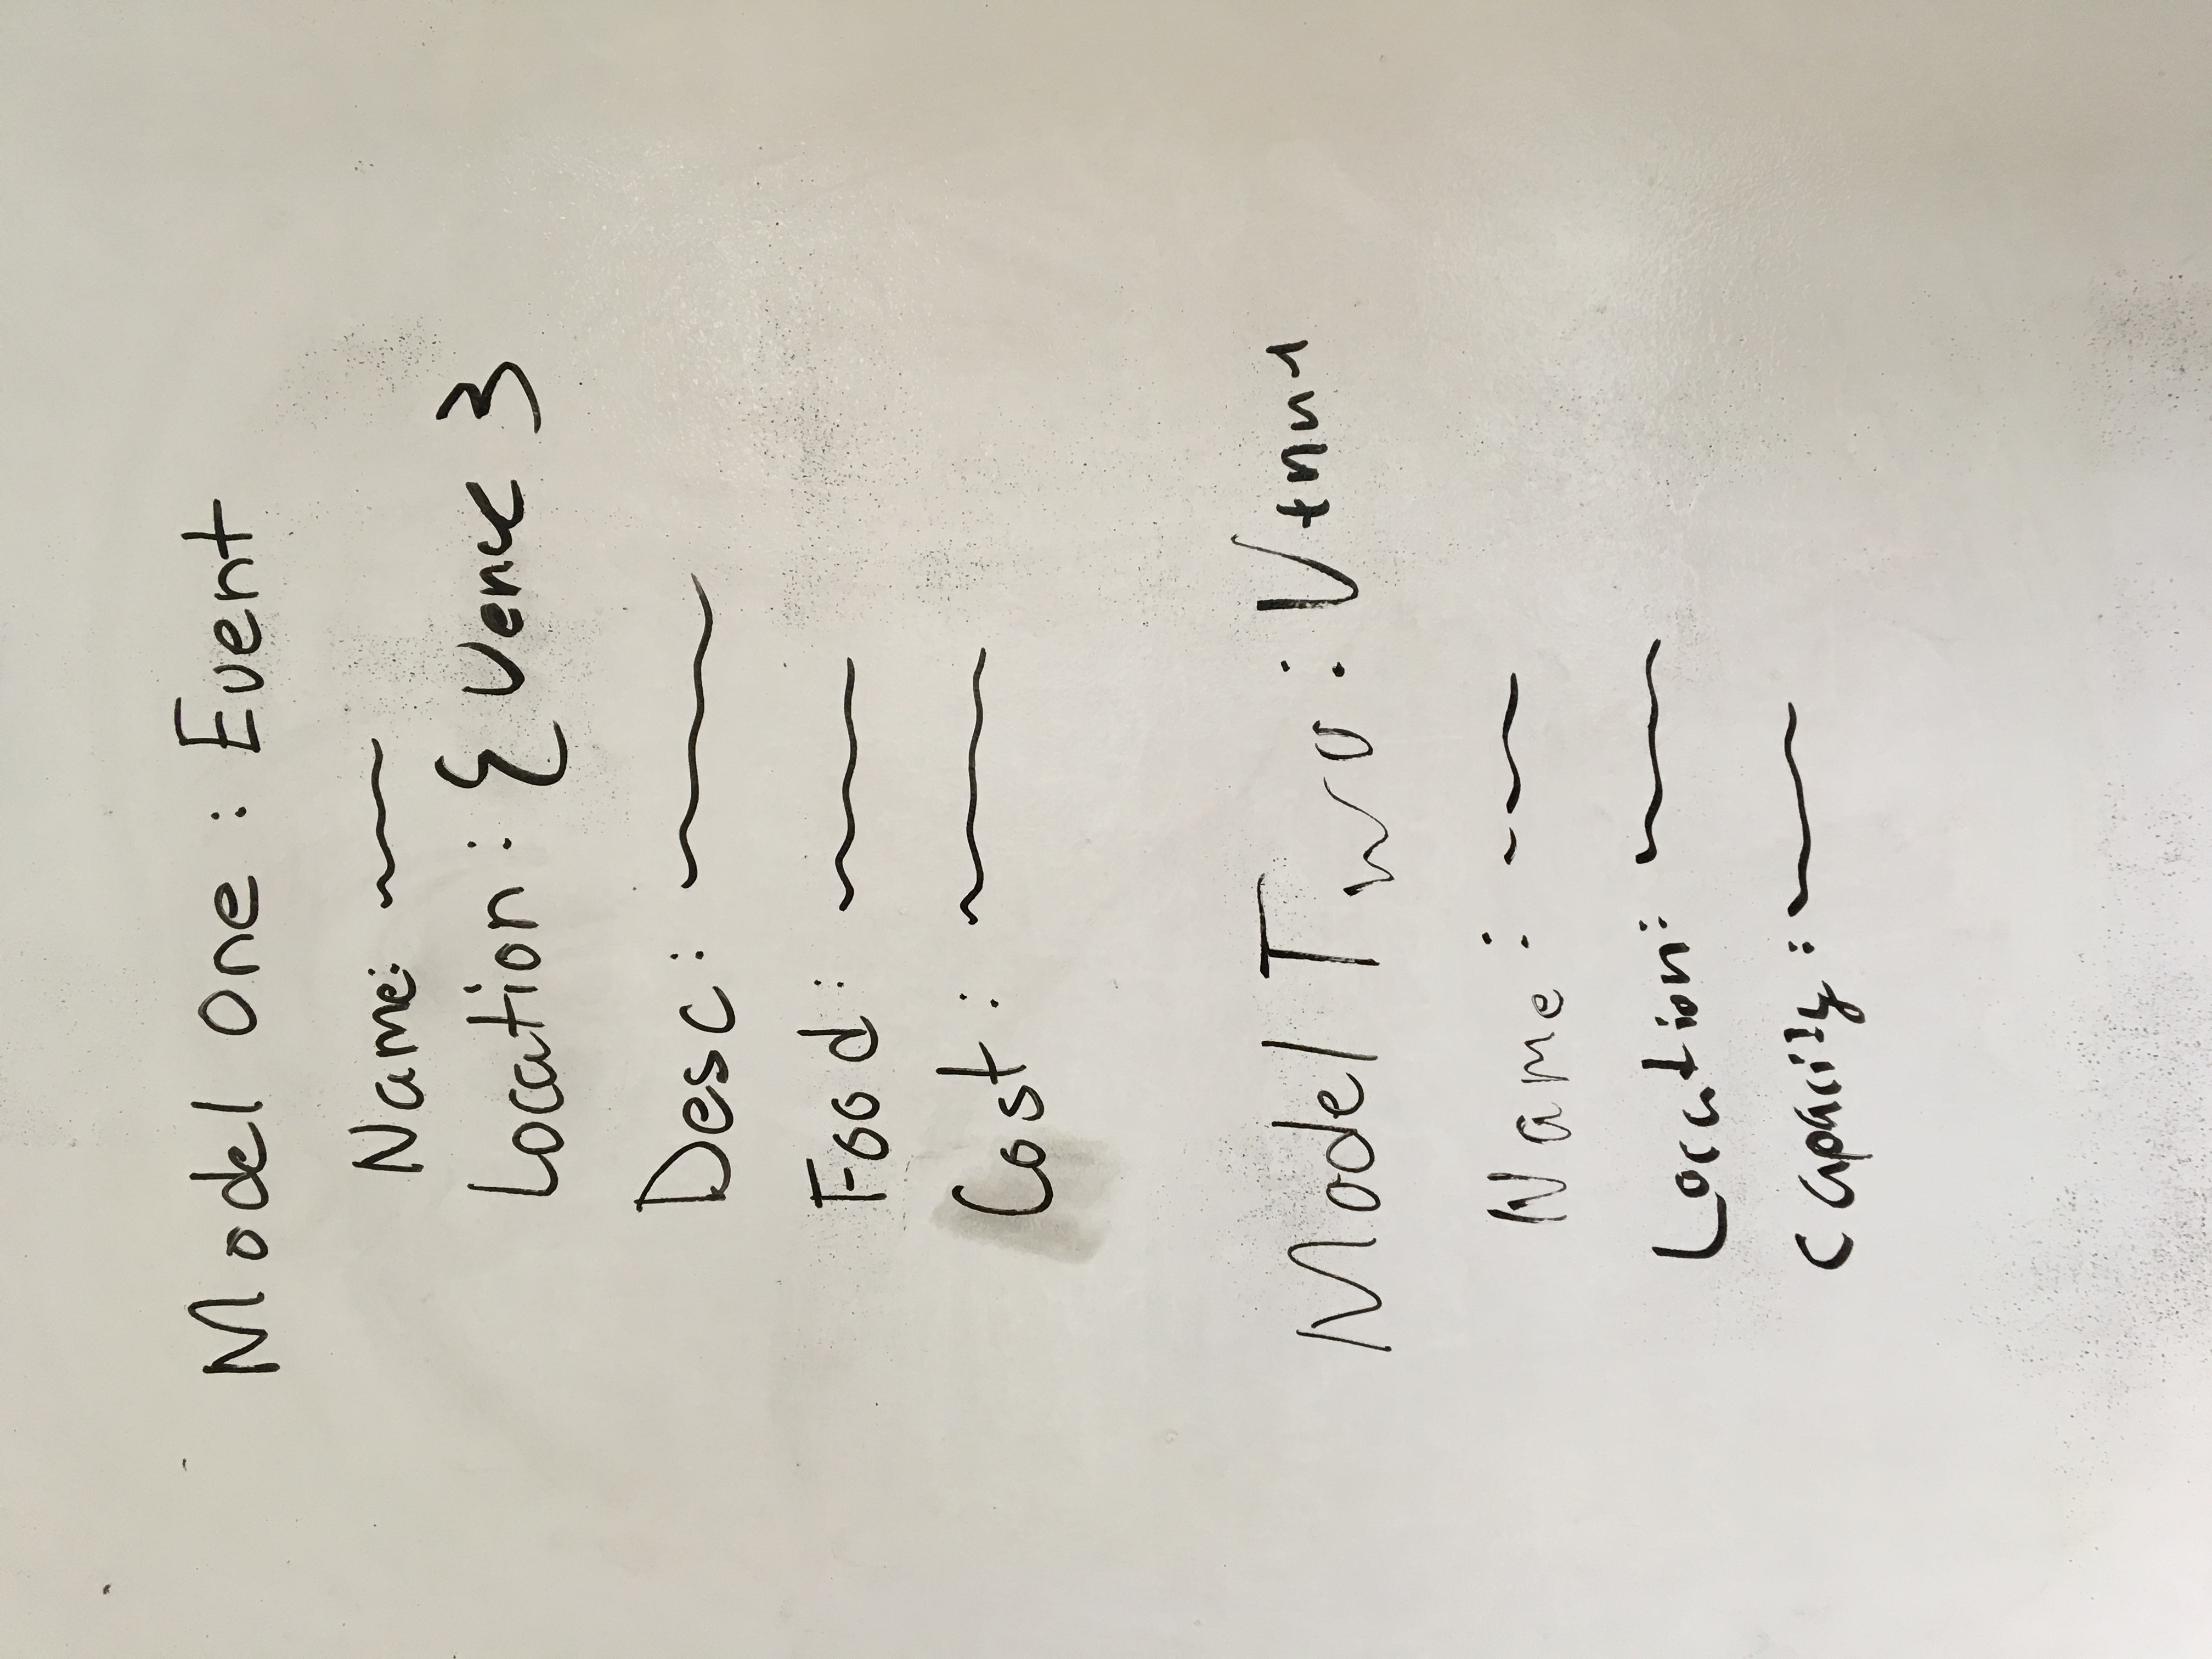 Model One : Event
Name:
Location : { Venue }
Desc :
Food :
Cost :
Model Two : Venue
Name :
Location :
Capacity :